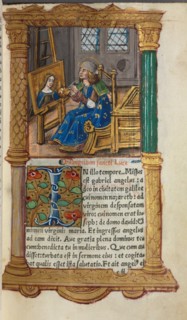 N illo tempore. Missus
est gabriel angelus a
deo in ciuitatem galilee
cui nomen nazareth: ad
virginem desponsatam
viro: cui nomen erat io
seph: de domo dauid: et
nomen virginis maria. Et ingressus angelus
ad eam dixit. Aue gratia plena dominus te
cum: benedicta tu in mulieribus. Que cum au
disset: turbata est in sermone eius: et cogita
bat qualis esset ista salutatio. Et ait angelus ei